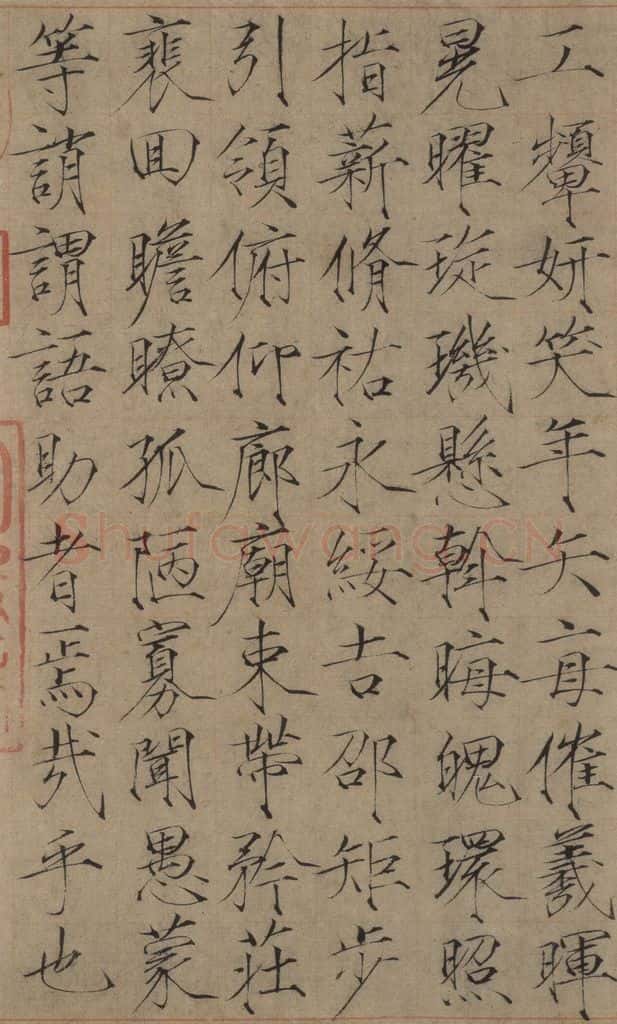 工顰妍笑年矢每催羲暉
晃曜琁璣懸斡晦魄環照
指薪脩祐永綏吉邵矩步
引領俯仰廊廟束帶矜莊
裵回瞻瞭孤陋寡聞愚蒙
等誚謂語助者焉哉乎也
Shufawang.CN